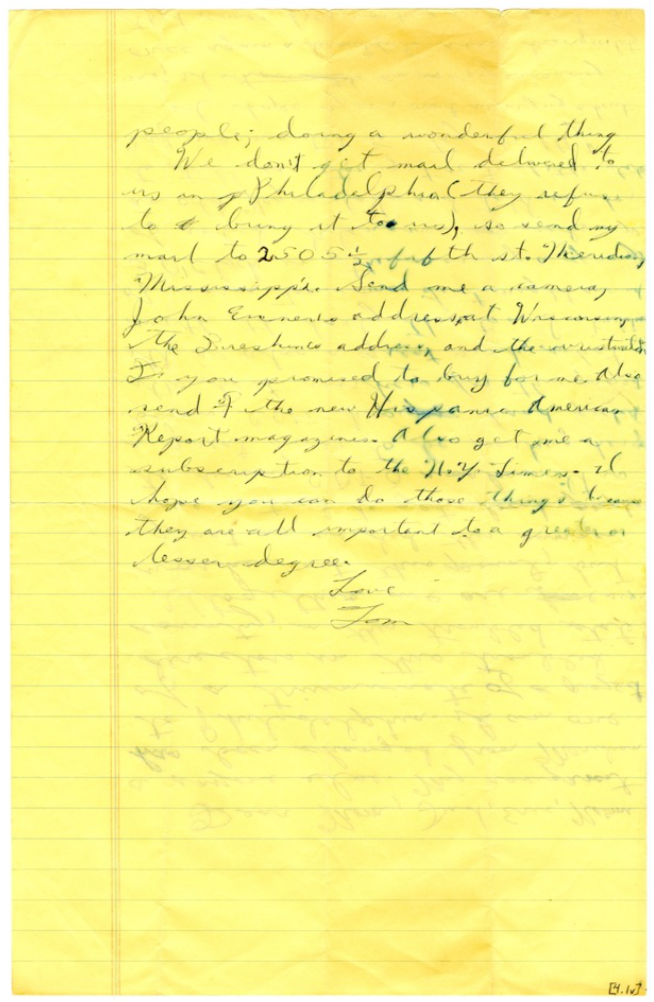 people; doing a wonderful thing
We don't get mail delivered to
us in Philadelphia (they refuse
to bring it to us), so send my
mail to 2505½ fifth st. Meridian,
Mississippi. Send me a camera,
John Evenens address at Wisconsin,
the address, and the
you promised to buy for me. Also
send the new Hispanic American
Report magazines. Also get me a
subscription to the N.Y. Times. I
hope you can do those things because
they are all important to a greater or
lesser degree.
Love
Tom